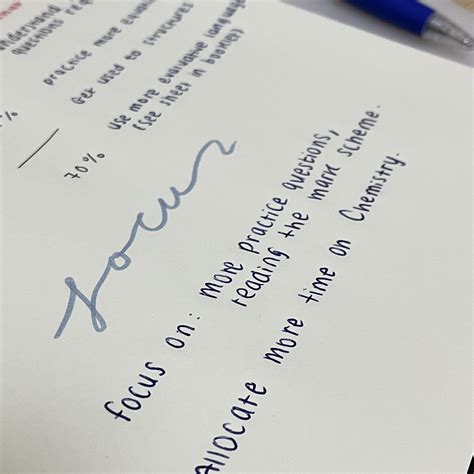 understand
questions
practice more
Get used to structures
%
70%
use more evaluative language
(see sheet in booklet)
focus
focus on: more practice questions,
reading the mark scheme.
Allocate more time on Chemistry.